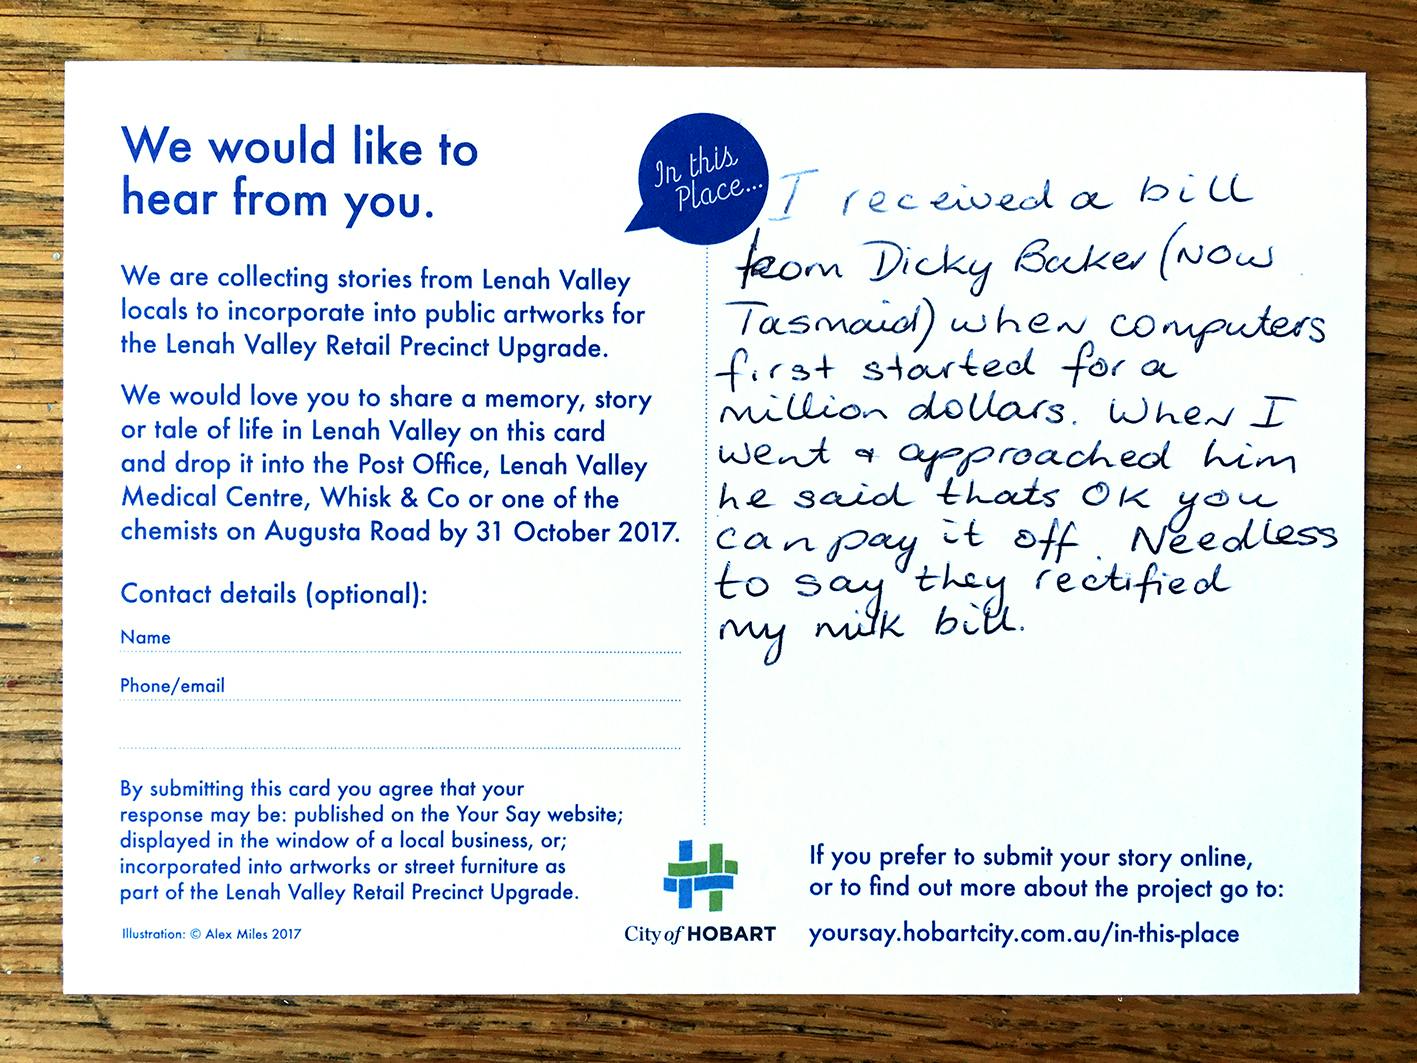 We would like to
hear from you.
We are collecting stories from Lenah Valley
locals to incorporate into public artworks for
the Lenah Valley Retail Precinct Upgrade.
We would love you to share a memory, story
or tale of life in Lenah Valley on this card
and drop it into the Post Office, Lenah Valley
Medical Centre, Whisk & Co or one of the
chemists on Augusta Road by 31 October 2017.
Contact details (optional):
Name
Phone/email
By submitting this card you agree that your
response may be: published on the Your Say website;
displayed in the window of a local business, or;
incorporated into artworks or street furniture as
part of the Lenah Valley Retail Precinct Upgrade.
Illustration: © Alex Miles 2017
In this
Place...
I received a bill
from Dicky Baker (Now
Tasmaid) when computers
first started for a
million dollars. When I
went & approached him
he said thats OK you
can pay it off. Needless
to say they rectified
my milk bill.
City of HOBART
If you prefer to submit your story online,
or to find out more about the project go to:
yoursay.hobartcity.com.au/in-this-place